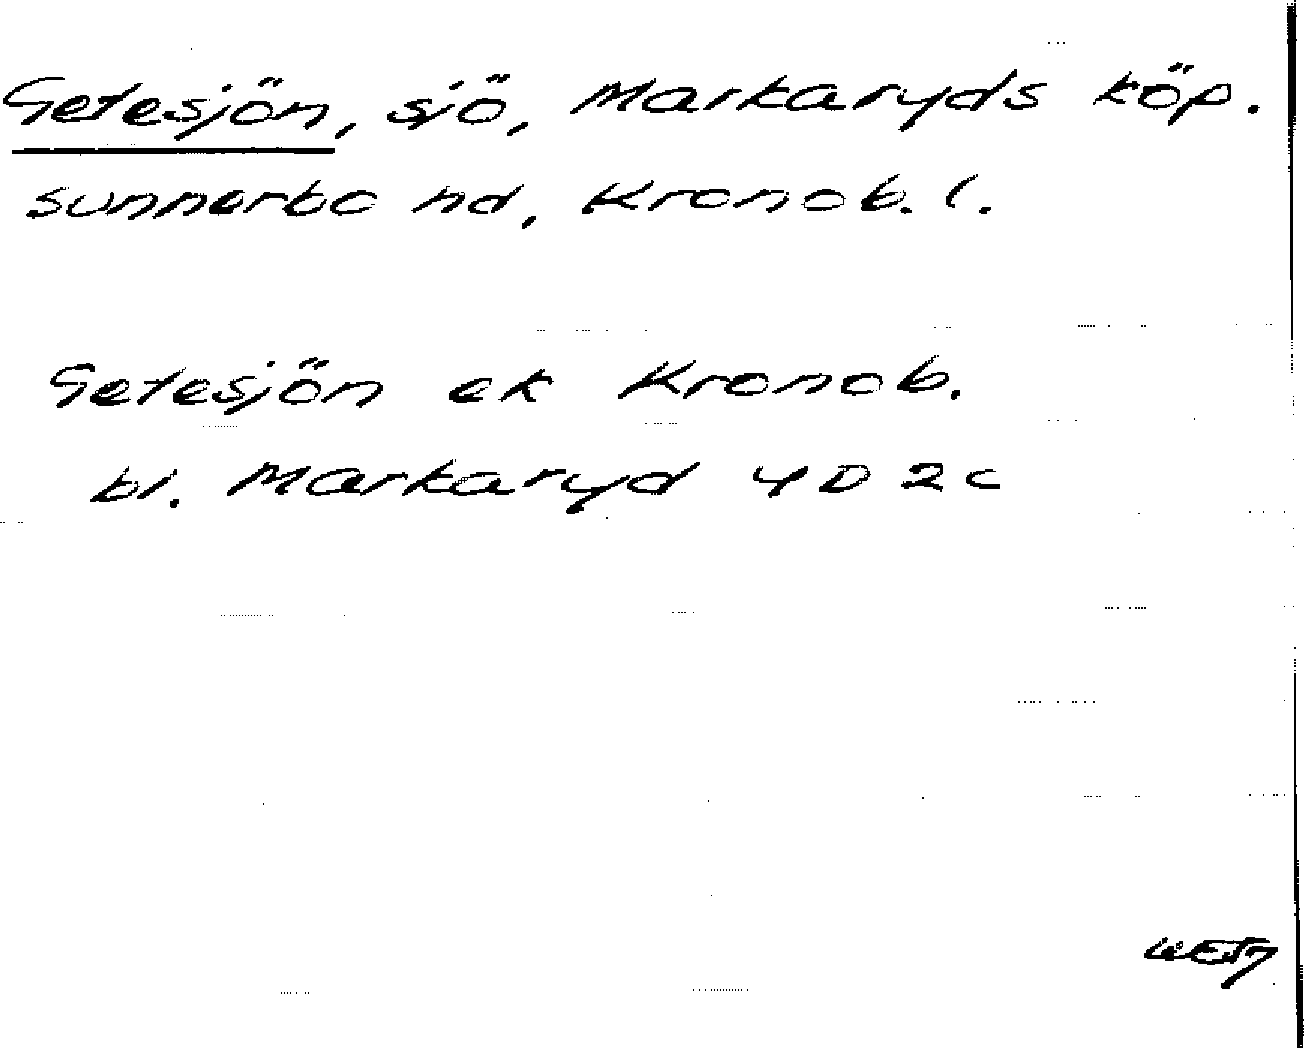 Getesjön, sjö, Markaryds köp.
Sunnerbo hd, Kronob. l.
Getesjön ek Kronob.
bl. Markaryd 4D 2c